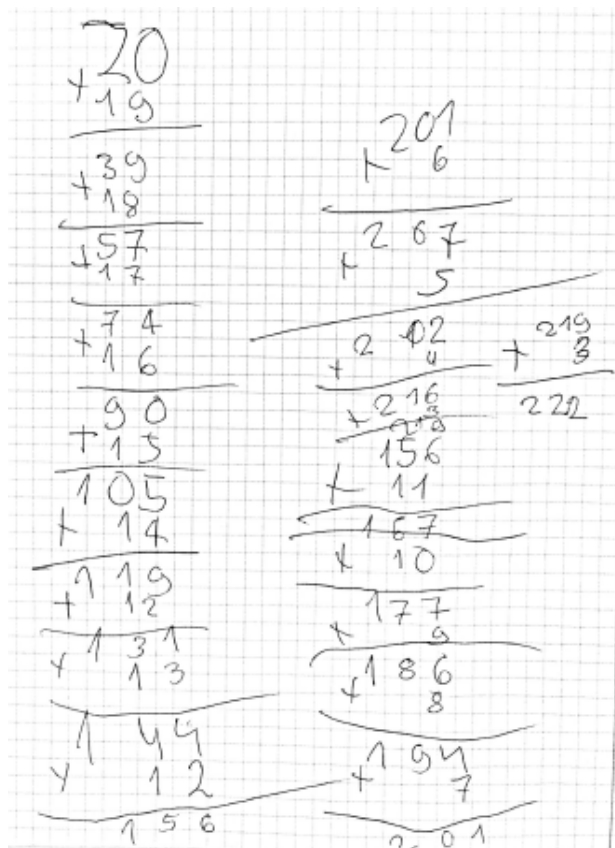 20
+19
+39
18
+57
17
+74
16
90
+15
105
+ 14
119
+ 12
131
+ 13
144
+ 12
156
201
+ 6
267
+ 5
2 12
+ 4
+216
219
156
+ 11
167
+ 10
177
+ 9
186
+ 8
194
+ 7
201
219
+ 3
222